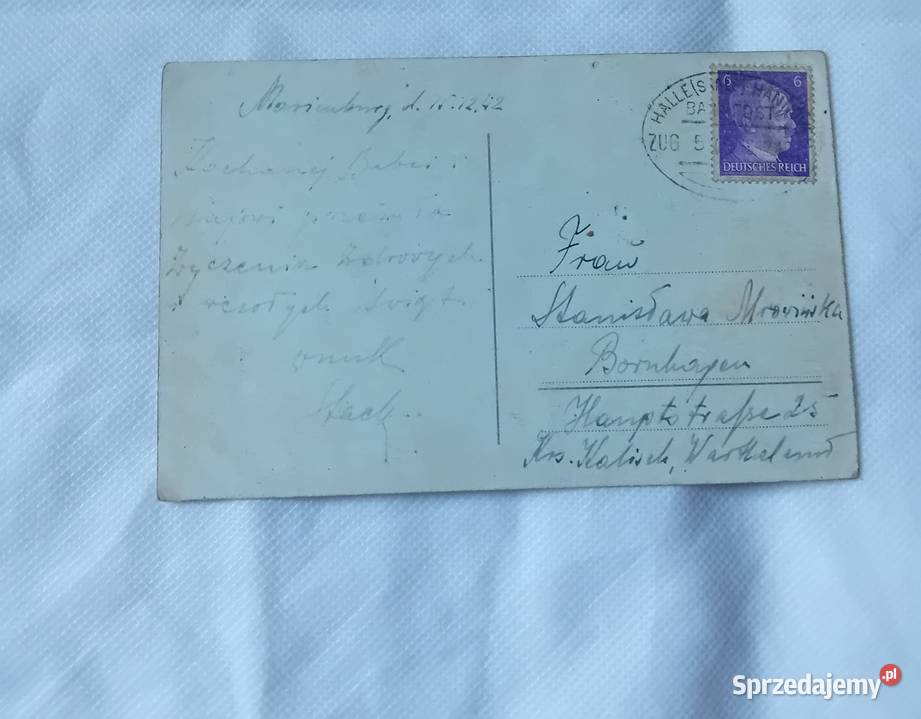 Marienburg, d. 15.12.42
Kochanej Babci i
życzenia zdrowych
i wesołych świąt
wnuk
HALLE(S HANN
BA POST
ZUG 5
6 6
DEUTSCHES REICH
Frau
Stanisława Mrowińska
Bornhagen
Hauptstraße 25
Krs. Kalisch, Wartheland
Sprzedajemy.pl